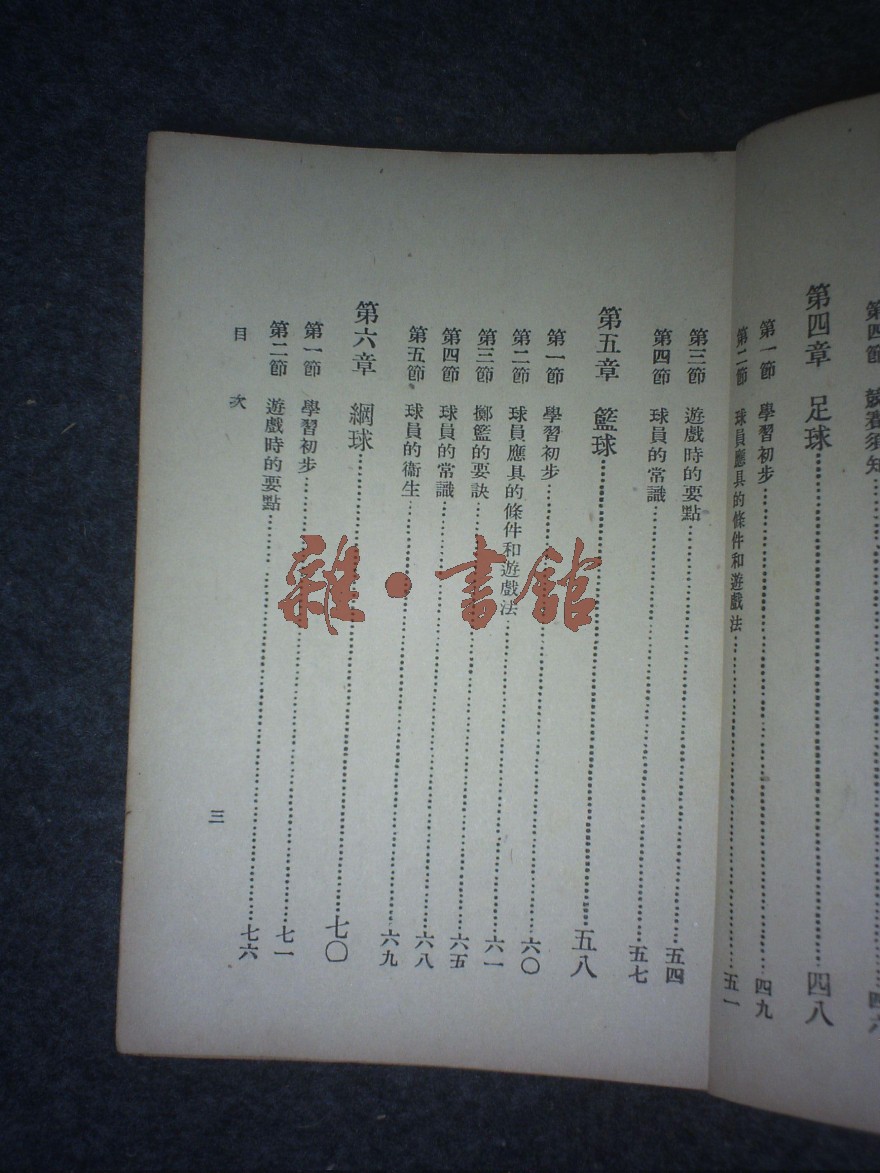 第四節 競賽須知……四六
第四章 足球……四八
第一節 學習初步……四九
第二節 球員應具的條件和遊戲法……五一
第三節 遊戲時的要點……五四
第四節 球員的常識……五七
第五章 籃球……五八
第一節 學習初步……六〇
第二節 球員應具的條件和遊戲法……六一
第三節 擲籃的要訣……六五
第四節 球員的常識……六八
第五節 球員的衞生……六九
第六章 網球……七〇
第一節 學習初步……七一
第二節 遊戲時的要點……七六
目次
三
雜·書館